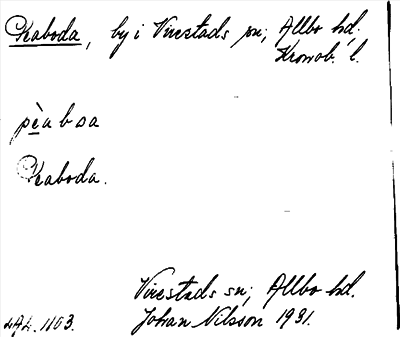 Kaboda, by i Virestads sn; Allbo hd.
Kronob. l.
pèabɷa
Kaboda.
Virestads sn; Allbo hd.
LAL. 1103. Johan Nilsson 1931.